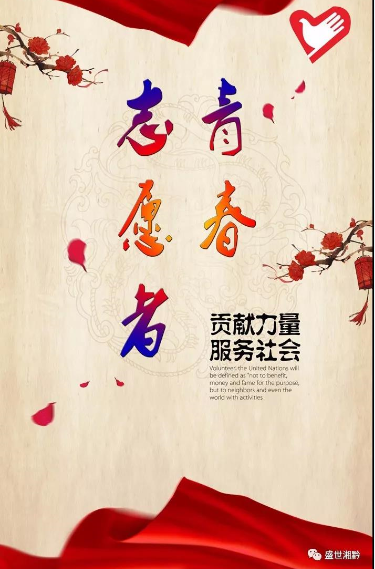 青春
志愿者
贡献力量
服务社会
Volunteers the United Nations will
be defined as "not to benefit,
money and fame for the purpose,
but to neighbors and even the
world with activities
盛世湘黔